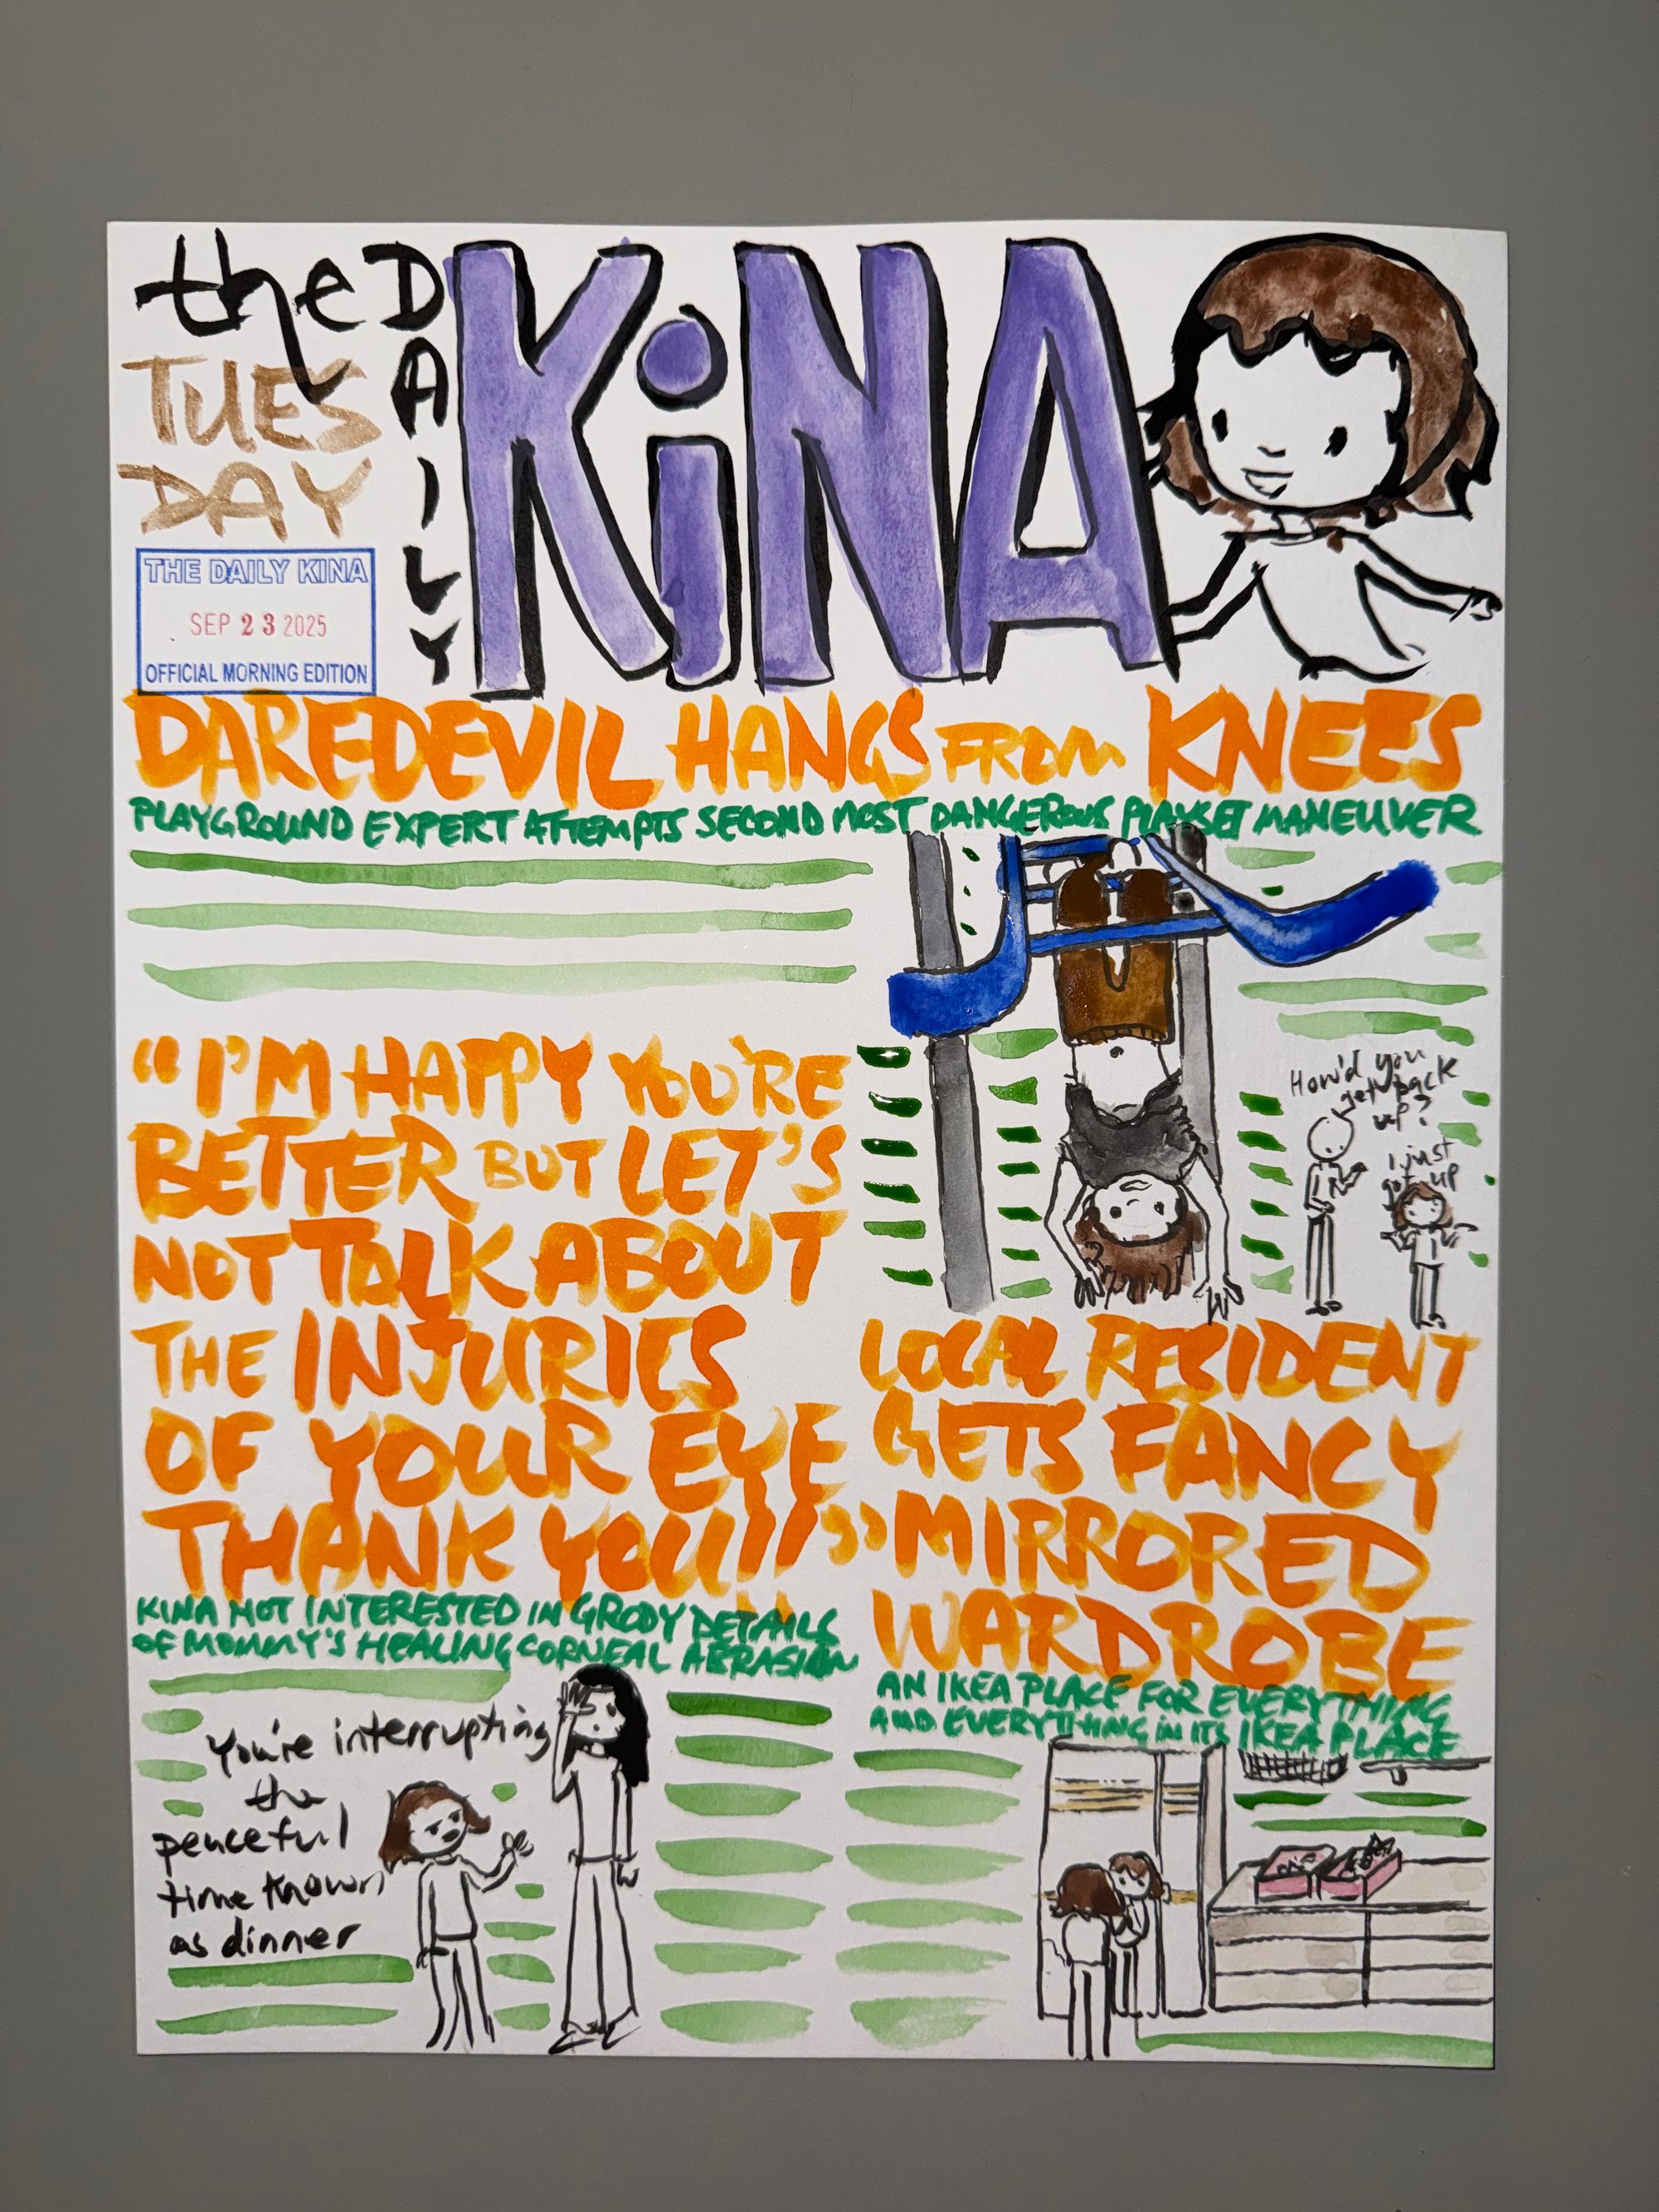 the DAILY KiNA
TUES
DAY
THE DAILY KINA
SEP 23 2025
OFFICIAL MORNING EDITION
DAREDEVIL HANGS FROM KNEES
PLAYGROUND EXPERT ATTEMPTS SECOND MOST DANGEROUS PLAYSET MANEUVER
How'd you
get back
up?
I just
got up
"I'M HAPPY YOU'RE
BETTER BUT LET'S
NOT TALK ABOUT
THE INJURIES
OF YOUR EYE
THANK YOU!!"
KINA NOT INTERESTED IN GRODY DETAILS
OF MOMMY'S HEALING CORNEAL ABRASION
You're interrupting
the
peaceful
time known
as dinner
LOCAL RESIDENT
GETS FANCY
MIRRORED
WARDROBE
AN IKEA PLACE FOR EVERYTHING
AND EVERYTHING IN ITS IKEA PLACE